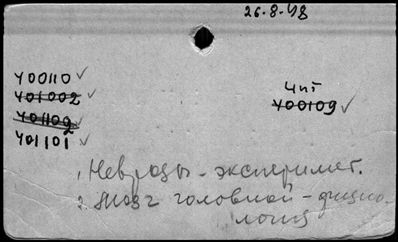 26.8.48
400110 ✓
401002 ✓
401109 ✓
401101 ✓
Чит
400109 ✓
1. Неврозы - эксперимет.
2. Мозг головной - физио-
логия